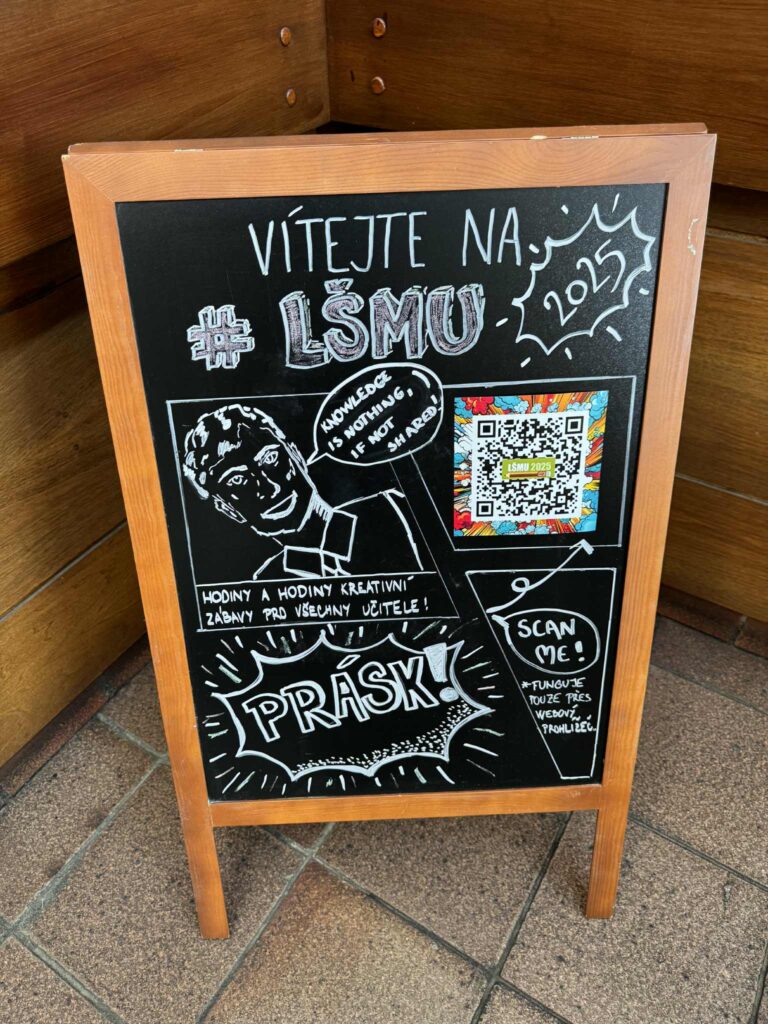 VÍTEJTE NA
# LŠMU
2025
KNOWLEDGE
IS NOTHING,
IF NOT
SHARED!
LŠMU 2025
HODINY A HODINY KREATIVNÍ
ZÁBAVY PRO VŠECHNY UČITELE!
PRÁSK!
SCAN
ME!
*FUNGUJE
POUZE PŘES
WEBOVÝ
PROHLÍŽEČ.